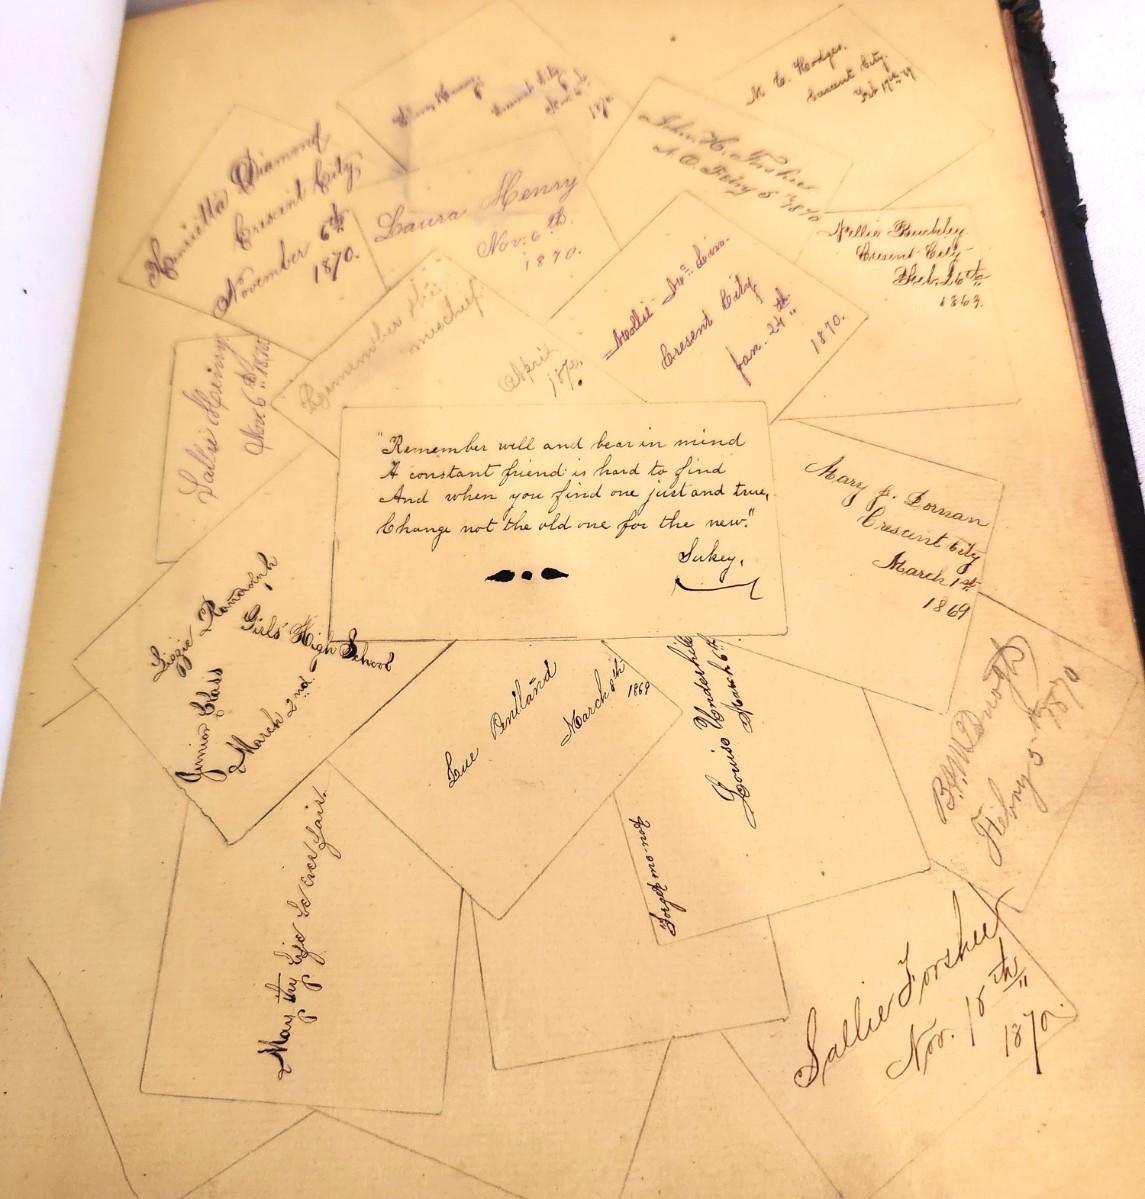 M. C. Hodges.
Crescent City.
Feb 17th
Crescent City
Henrietta Diamond
Crescent City
November 6th
1870.
Laura Henry
Nov. 6th
1870.
John H. Forshee
N. O. Feby 5th 1870
Nellie Buckley.
Cresent City
Feb. 26th
1869.
Remember the
mischief
April
1870.
Mollie
Cresent City
Jan. 24th
1870.
Sallie
Nov. 6th 1870
"Remember well and bear in mind
A constant friend is hard to find
And when you find one just and true,
Change not the old one for the new."
Sukey.
Mary J. Dornan
Crescent City
March 1st
1869
Lizzie Randolph
Girls' High School
Junior Class
March 2nd.
Sue Pentland
March 8th
1869
Louise Underhill
March 6th
Forget-me-not
May thy life be ever fair.
Feby 5th
1870
Sallie Forshee
Nov. 18th
1870.